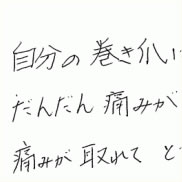 自分の巻き爪い
だんだん痛みが
痛みが取れて と